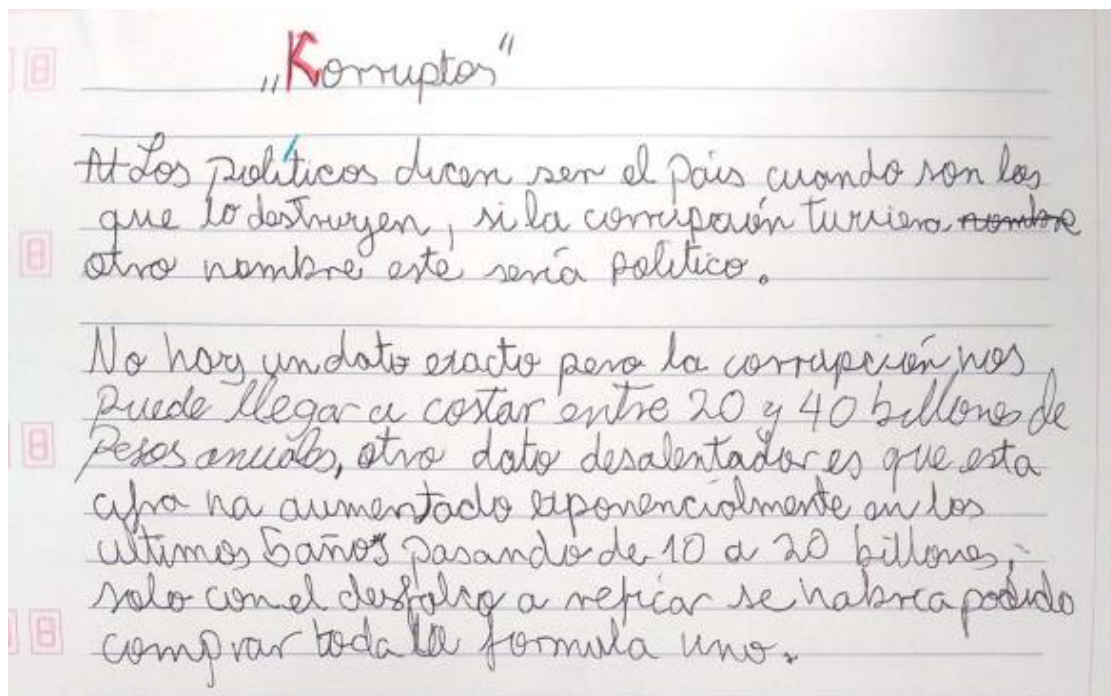 „Korruptos"
At Los políticos dicen ser el país cuando son los
que lo destruyen, si la corrupción tuviera nombre
otro nombre este sería político.
No hay un dato exacto pero la corrupción nos
puede llegar a costar entre 20 y 40 billones de
Pesos anuales, otro dato desalentador es que esta
cifra ha aumentado exponencialmente en los
ultimos 5 años pasando de 10 a 20 billones,
solo con el desfalco a reficar se habria podido
comprar toda la formula uno.